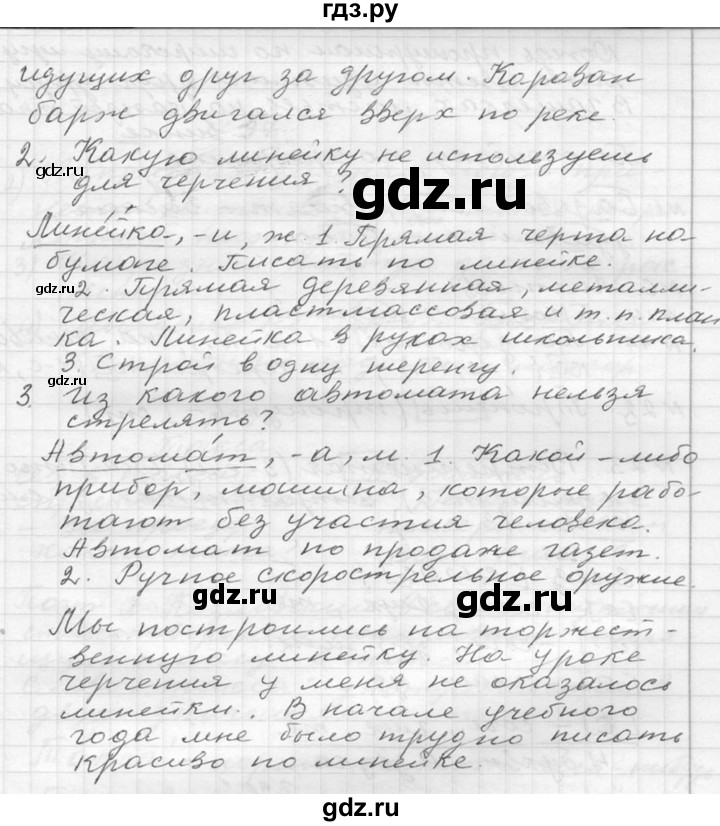 гдз.ру
идущих друг за другом. Караван
барж двигался вверх по реке.
2. Какую линейку не используешь
для черчения?
gdz.ru
gdz.ru
Линейка, -и, ж. 1. Прямая черта на
бумаге. Писать по линейке.
gdz.ru
2. Прямая деревянная, металли-
ческая, пластмассовая и т. п. план
ка. Линейка в руках школьника.
gdz.ru
3. Строй в одну шеренгу.
3. Из какого автомата нельзя
стрелять?
gdz.ru
Автомат, -а, м. 1. Какой-либо
прибор, машина, которые рабо-
тают без участия человека.
Автомат по продаже газет.
2. Ручное скорострельное оружие.
gdz.ru
gdz.ru
Мы построились на торжест-
венную линейку. На уроке
черчения у меня не оказалось
линейки. В начале учебного
года мне было трудно писать
красиво по линейке.
gdz.ru
gdz.ru
gdz.ru